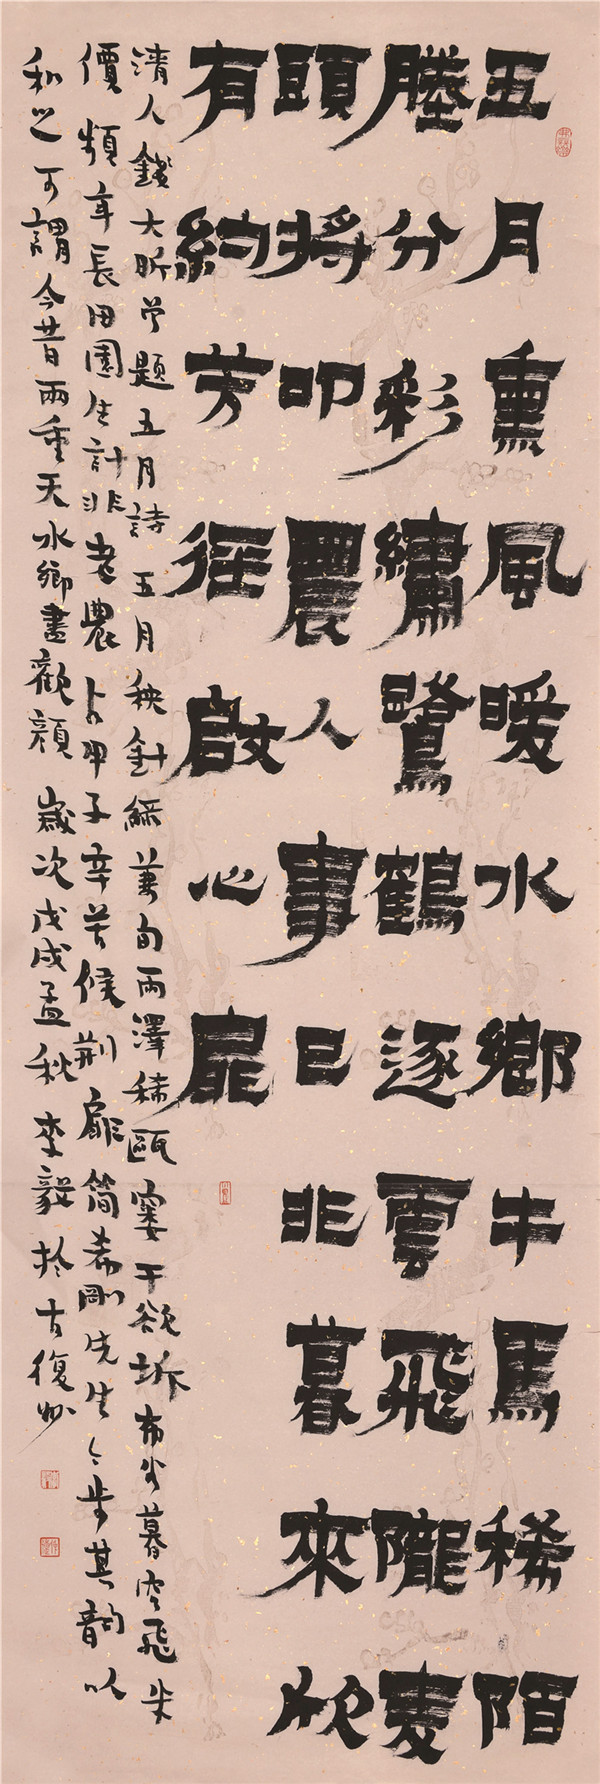 五月熏風暖水鄉牛馬稀陌
塍分彩繡鷺鶴逐雲飛隴麥
頭將叩農人事已非暮來欣
有約芳徑啟心扉
清人錢大昕曾題五月詩五月秧針綠兼旬雨澤稀甌窶干欲坼布穀暮空飛米
價頻年長田園生計非老農占甲子辛苦候荊扉簡希剛先生步其韻以
和之可謂今昔兩重天水鄉盡歡顏歲次戊戌孟秋李毅於古復州